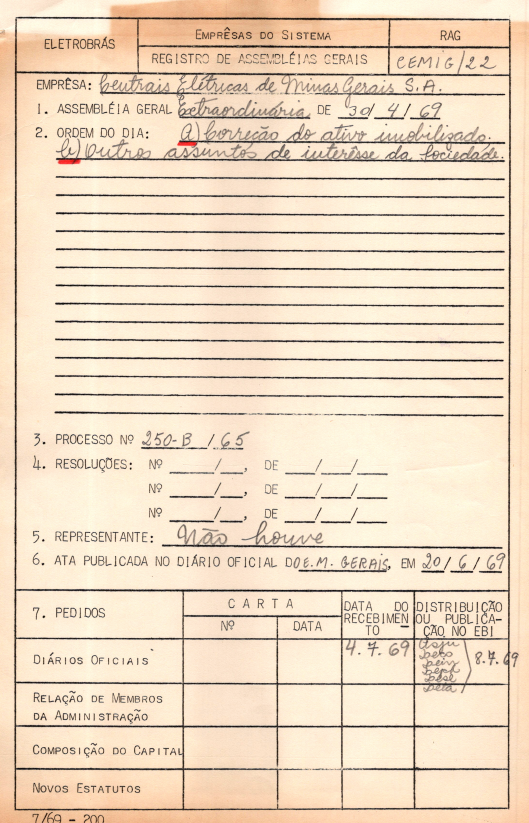 ELETROBRÁS
EMPRÊSAS DO SISTEMA
RAG
REGISTRO DE ASSEMBLÉIAS GERAIS
CEMIG/22
EMPRÊSA: Centrais Elétricas de Minas Gerais S.A.
1. ASSEMBLÉIA GERAL Extraordinária, DE 30/4/69
2. ORDEM DO DIA: a) Correção do ativo imobilizado;
b) Outros assuntos de interêsse da Sociedade.
3. PROCESSO Nº 250-B /65
4. RESOLUÇÕES: Nº ____/__, DE ___/___/___
Nº ____/__, DE ___/___/___
Nº ____/__, DE ___/___/___
5. REPRESENTANTE: Não houve
6. ATA PUBLICADA NO DIÁRIO OFICIAL DO E.M. GERAIS, EM 20/6/69
7. PEDIDOS
CARTA
Nº
DATA
DATA DO
RECEBIMEN
TO
DISTRIBUIÇÃO
OU PUBLICA-
ÇÃO NO EBI
DIÁRIOS OFICIAIS
4.7.69
8.7.69
RELAÇÃO DE MEMBROS
DA ADMINISTRAÇÃO
COMPOSIÇÃO DO CAPITAL
NOVOS ESTATUTOS
7/69 - 200